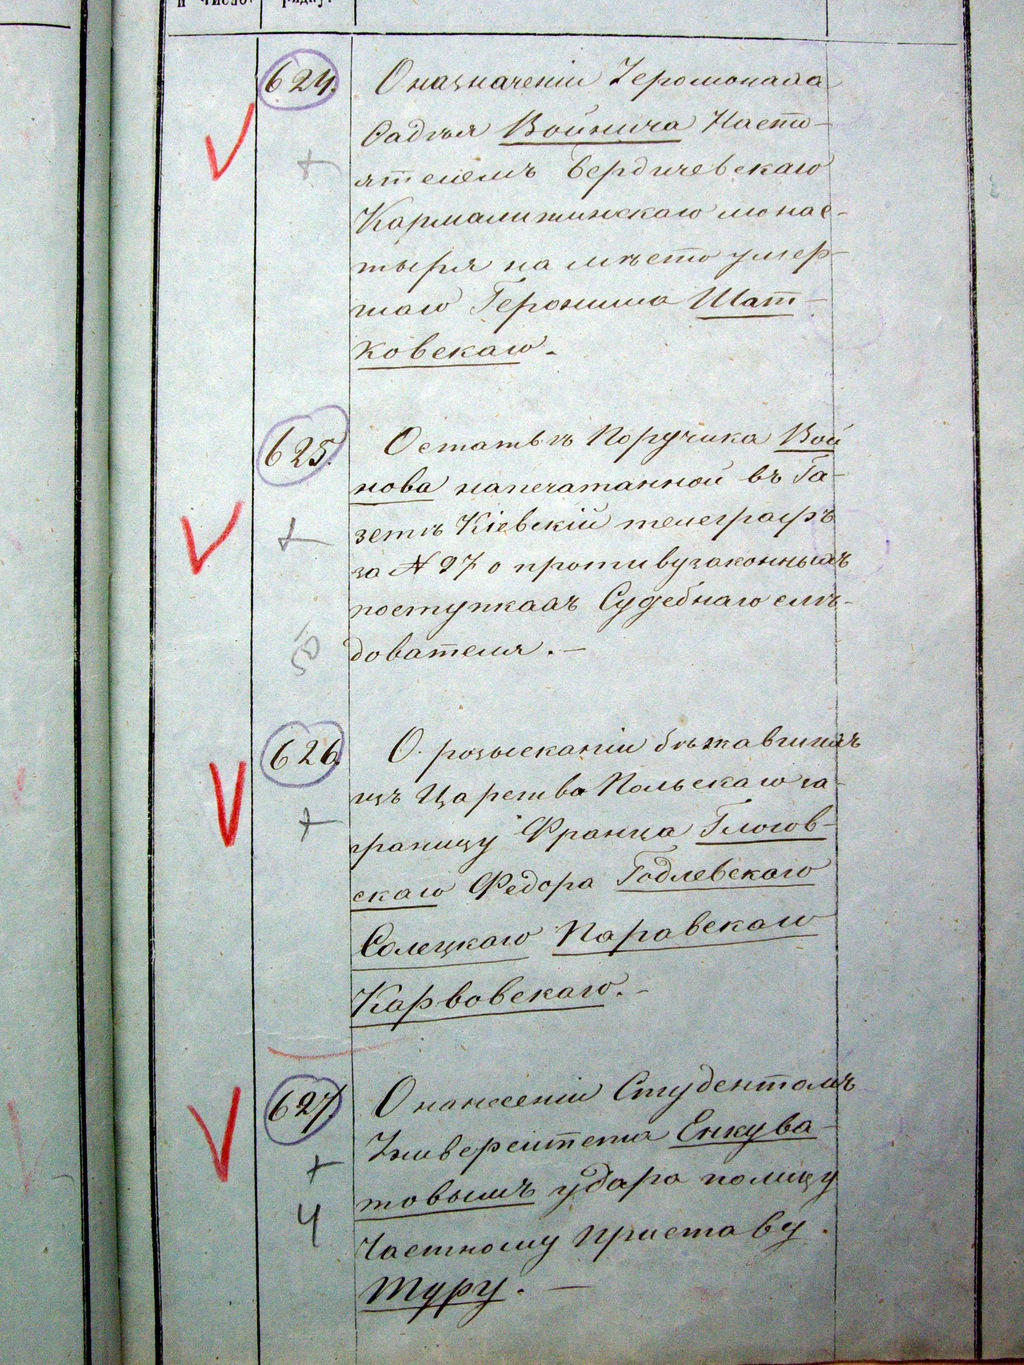 и число.
рядку.
624.
О назначеніи Іеромонаха
Фадѣя Войнича Насто-
ятелемъ Бердичевскаго
Кармелитинскаго монас-
тыря на мѣсто умер-
шаго Героніма Шат-
ковскаго.
625.
О статьѣ Поручика Вой
нова напечатанной въ Га-
зетѣ Кіевскій телеграфъ
за № 97 о противузаконныхъ
поступкахъ Судебнаго слѣ-
дователя. —
626.
О розысканіи бѣжавшихъ
изъ Царства Польскаго за-
границу Франца Глогов-
скаго Федора Годлевскаго
Солецкаго Паравскаго
Карвовскаго. —
627
О нанесеніи Студентомъ
Университета Енкува-
товымъ удара по лицу
Частному Приставу
4
Туру. —